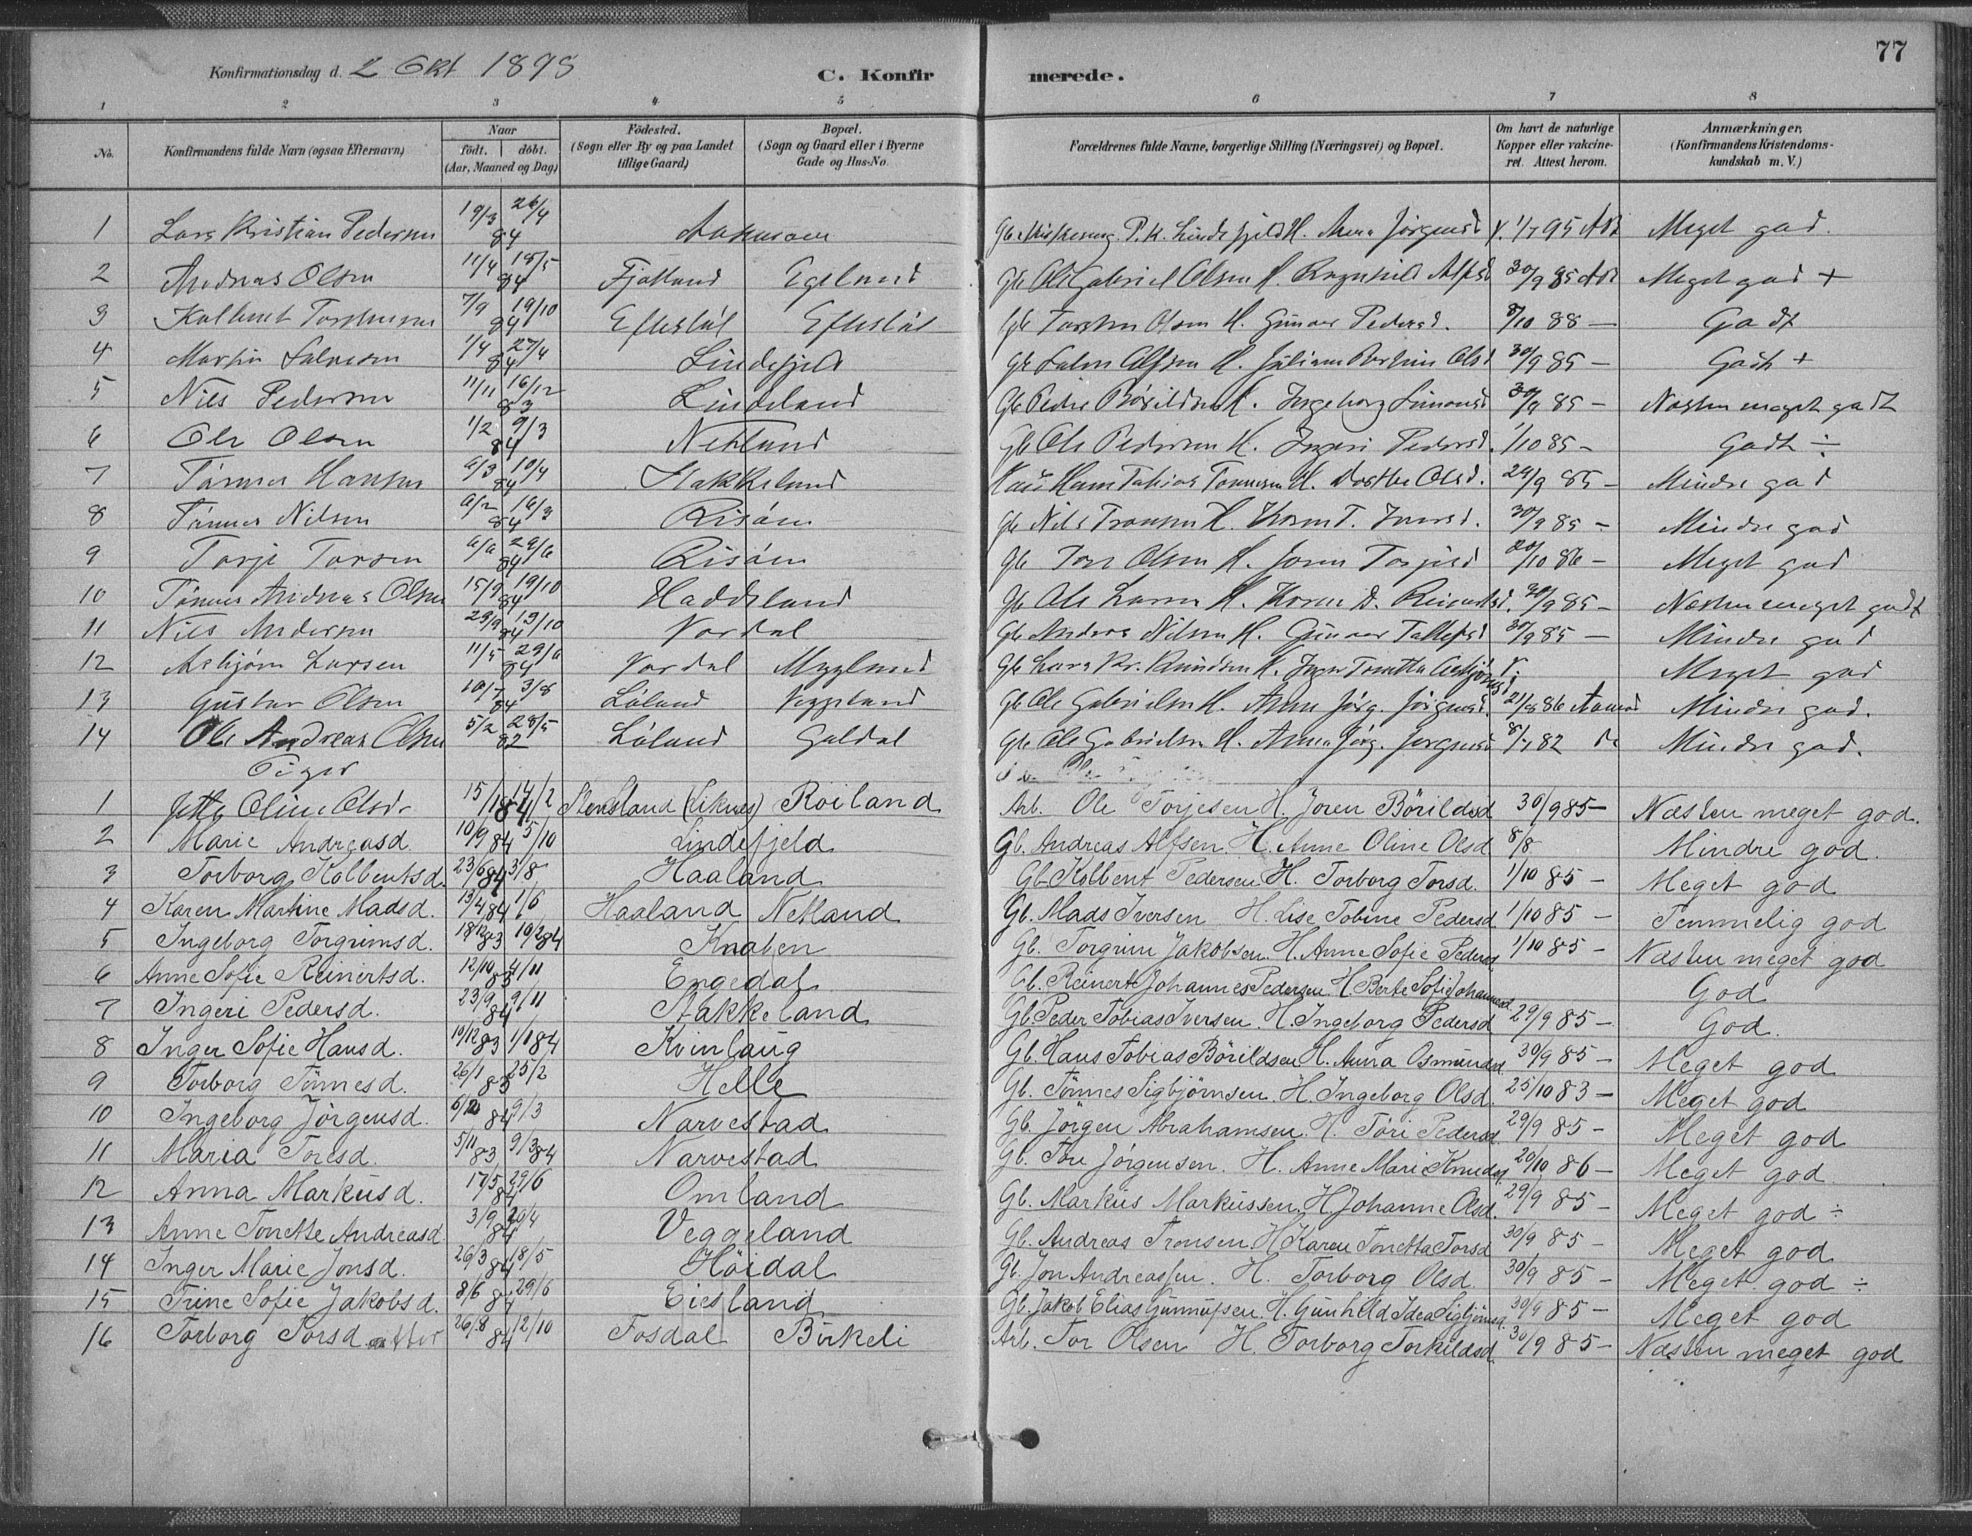 77
Konfirmationsdag d. 2 Okt 1898
C. Konfirmerede.
1 2 3 4 5 6 7 8
No.
Konfirmandens fulde Navn (ogsaa Efternavn)
Naar
født. døbt.
(Aar, Maaned og Dag)
Födested.
(Sogn eller By og paa Landet
tillige Gaard)
Bopæl.
(Sogn og Gaard eller i Byerne
Gade og Hus-No.
Forældrenes fulde Navne, borgerlige Stilling (Næringsvei) og Bopæl.
Om havt de naturlige
Kopper eller vakcine-
ret. Attest herom.
Anmærkninger.
(Konfirmandens Kristendoms-
kundskab m. V.)
1 Lars Kristian Pedersen 19/3 26/4 84 P. K. Lindefjeld H. Anna Jörgensd 1/7 95 Meget god.
2 Andreas Olsen 11/4 18/5 84 Fjotland Egeland Gb Ole Gabriel Olsen H. Ragnhild Alfsd 30/9 85 Meget god +
3 Kolbent Torstensen 7/9 19/10 84 Eftestøl Eftestøl Gb Torsten Olsen H. Gunvor Pedersd. 8/10 88 — Godt
4 Martin Salvesen 1/4 27/4 84 Lindefjeld Gb Salve Alfsen H. Juliane Olsd 30/9 85 — Godt +
5 Nils Pedersen 11/11 16/12 83 Lindeland Gb Peder Börildsen H. Ingeborg Simonsd 30/9 85 — Næsten meget godt
6 Ole Olsen 1/2 9/3 84 Netland Gb Ole Pedersen H. Ingeri Pedersd. 1/10 85 — Godt ÷
7 Tönnes Hansen 10/4 84 Stakkeland Hans Tobias Tönnesen H. Dorthe Olsd. 29/9 85 — Mindre god
8 Tönnes Nilsen 16/3 84 Risöen Gb Nils Tronsen H. Karen T. Jonsd. 30/9 85 — Mindre god
9 Torje Torsen 29/6 84 Risöen Gb Tore Olsen H. Joren Torjusd 20/10 86 — Meget god
10 Tönnes Andreas Olsen 15/9 19/10 84 Haddeland Gb Ole Larsen H. Karen D. Reinertsd. 30/9 85 — Næsten meget godt
11 Nils Andersen 23/9 19/10 84 Vordal Gb Andreas Nilsen H. Gunvor Tallefsd 30/9 85 — Mindre god
12 Asbjörn Larsen 11/5 29/6 84 Vordal Mygland Gb Lars Kr. Knudsen H. Inger Tonetta Asbjörnsd v. Meget god
13 Gustav Olsen 10/7 3/8 84 Löland Veggeland Gb Ole Gabrielsen H. Anna Jörg. Jörgensd. 21/8 86 Mindre god.
14 Ole Andreas Olsen 5/2 28/5 82 Löland Galdal Gb Ole Gabrielsen H. Anna Jörg. Jörgensd 82 do Mindre god.
Piger
1 Jette Oline Olsdr 15/1 14/2 84 Stensland (Liknes) Röiland Arb. Ole Torjesen H. Joren Börildsd 30/9 85 — Næsten meget god.
2 Marie Andreasd. 10/9 5/10 84 Lindefjeld Gb. Andreas Alfsen. H. Anne Oline Olsd 8/8 Mindre god.
3 Torborg Kolbentsd. 23/6 3/8 84 Haaland Gb Kolbent Pedersen H. Torborg Torsd. 1/10 85 — Meget god
4 Karen Martine Madsd. 13/4 1/6 84 Haaland Netland Gb. Mads Iversen H. Lise Tobine Pedersd 1/10 85 — Temmelig god
5 Ingeborg Torgrimsd. 18/12 83 10/2 84 Knaben Gb. Torgrim Jakobsen H. Anne Sofie Pedersd 1/10 85 — Næsten meget god
6 Anne Sofie Reinertsd. 12/10 4/11 83 Engedal Gb. Reinert Johannes Pedersen H. Berte Sofie Johannesd God
7 Ingeri Pedersd. 23/9 9/11 84 Stakkeland Gb. Peder Tobias Iversen. H. Ingeborg Pedersd 29/9 85 — God.
8 Inger Sofie Hansd. 19/12 83 1/1 84 Kvinlaug Gb. Hans Tobias Börildsen H. Anna Osmundsd 30/9 85 — Meget god
9 Torborg Tönnesd. 26/1 25/2 83 Helle Gb. Tönnes Sigbjörnsen. H. Ingeborg Olsd. 25/10 83 — Meget god
10 Ingeborg Jörgensd. 9/3 84 Narvestad Gb. Jörgen Abrahamsen. H. Töri Pedersd. 29/9 85 — Meget god
11 Maria Toresd. 5/11 83 9/3 84 Narvestad Gb. Tore Jörgensen. H. Anne Marie Knudsd 20/10 86 — Meget god
12 Anna Markusd. 17/5 29/6 84 Omland Gb. Markus Markussen. H. Johanne Olsd. 29/9 85 — Meget god ÷
13 Anne Tonette Andreasd 3/9 84 Veggeland Gb. Andreas Tronsen H. Karen Tonetta Torsd 30/9 85 — Meget god
14 Inger Marie Jonsd. 26/3 18/5 84 Höidal Gb. Jon Andreassen. H. Torborg Olsd. 30/9 85 — Meget god ÷
15 Trine Sofie Jakobsd. 8/6 29/6 84 Eiesland Gb. Jakob Elias Gunnufsen H. Gunhild Idea Sigbjörnsd 30/9 85 — Meget god
16 Torborg Torsd. 26/8 12/10 84 Fosdal Birkeli Arb. Tor Olsen H. Torborg Torkildsd. 30/9 85 — Næsten meget god